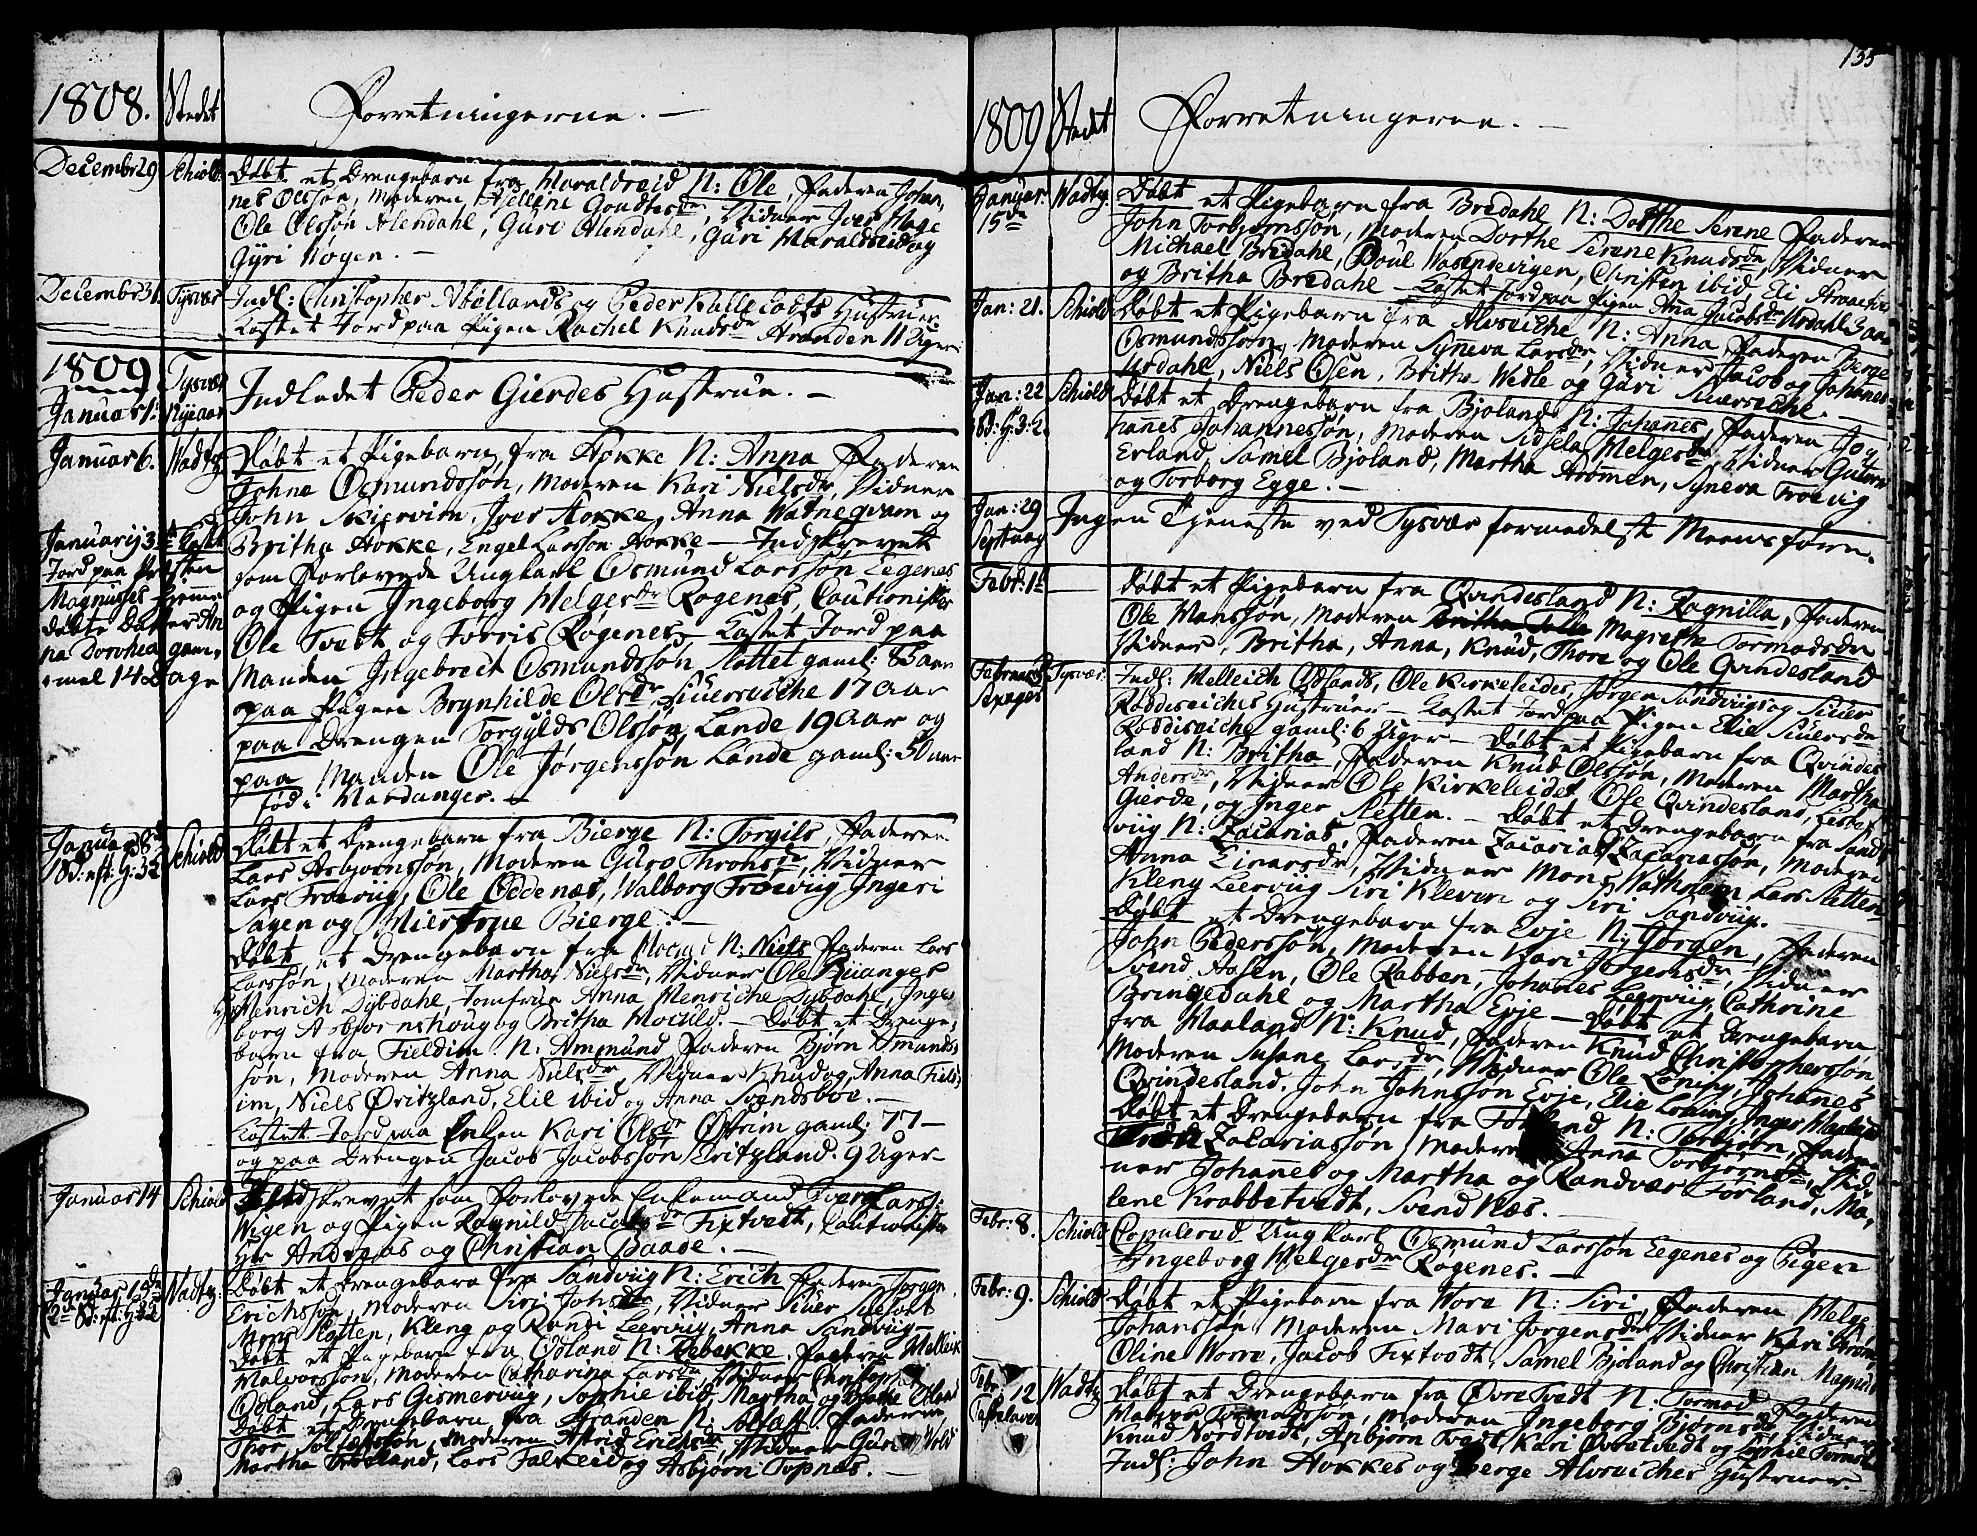 1808. Stedet Forretningerne. —
Decembr 29 Schiold. Døbt et Drengebarn fra Haraldseid N: Ole, Faderen Johan,
nes Olsson, Moderen Asseline Goudtesdr, Vidner Iver Hage
Ole Olssøn Alendahl, Guro Alendahl, Guri Haraldseid og
Gyri Høgen. —
Decembr 31. Tysvær Indl: Christopher Støllands og Peder Kallelødts Hustruer
Kastet Jord paa Pigen Rachel Knudsdr Aranden 11 Uger
1809 Tysvær
Januar 1. Nyeaar Indledet Peder Gierdes Hustrue. —
Januar 6. Wadtz Døbt et Pigebarn fra Hokke N: Anna Faderen
Johne Osmundssøn, Moderen Kari Nielsdr, Vidner
John Skiervim, Iver Hokke, Anna Watneqvam og
Britha Hokke, Engel Larssøn Hokke — Indskrevet
som Forlovede Ungkarl Osmund Larssøn Eegenes
og Pigen Ingeborg Helgesdr Røgenes, Cautionister
Ole Tvedt og Torris Røgenes — Kastet Jord paa
Manden Ingebrect Osmundssøn Slottet gaml: 83 aar
paa Pigen Brynhilde Olsdr Siuersviche 17 Aar
paa Drengen Torgylds Olsson Lande 19 Aar og
paa Manden Ole Jørgenssøn Lande gaml: 50 aar
fød i Hardanger. —
Januarij 3 Kastet
Jord paa Præsten
Magnusses hjemme
døbte Datter An
na Dorothea gam,
mel 14 Dage
Januar 8de Schiold Døbt et Drengebarn fra Bierge N: Torgils, Faderen
Lars Asbjørnssøn, Moderen Guro Thronsdr, Vidner
Lars Frøevig, Ole Oddenæs, Walborg Frøevig Ingeri
Sagen og Bierge. —
Døbt et Drengebarn fra N: Niels Faderen Lars
Larssøn, Moderen Martha Nielsdr, Vidner Ole
Hr. Henrich Dybdahl, Jomfrue Anna Henriche Dybdahl, Inge
borg Asbjørnshoug og Britha — Døbt et Drenge,
barn fra Fieldim N: Ammund Faderen Bjørn Omunds,
søn, Moderen Anna Nielsdr, Vidner Knud og Anna Field,
im, Niels Øritzland, Elie ibid og Anna Svendsbøe. —
Kastet Jord paa Enken Kari Olsdr Østrim gaml: 77 —
og paa Drengen Jacob Jacobssøn Eritzland. 9 Uger —
Januar 14 Schiold Indskrevet som Forlovede Enkemand Lars:
Wigen og Pigen Ragnild Jacobsdr Fixtvedt, Cautionister
Hr Andreas og Christian Baade. —
Januar 15de Wadtz: Døbt et Drengebarn fra Sandviig N: Erich Faderen Jørgen
Erichssøn, Moderen Siri Johnsdr, Vidner Siuer
Mons Slotten, Kleng og Randi Leervig, Anna Sandviig —
Døbt et Pigebarn fra Odland N: Rebekke. Faderen Melleich
Halvorssøn, Moderen Catharina Larsdr, Vidner
Odland, Lars Gismervig, Sophie ibid, Martha og
Døbt et Drengebarn fra Stranden N: Faderen
Thor Moderen Astrid Erichsdr, Vidner Guri Wold
Martha Lars Falkeid og Asbjørn Topnes. —
135
1809 Stedet Forretningerne. —
Januar 15de Wadtz Døbt et Pigebarn fra Bredahl N: Dorthe Serene Faderen
John Torbjørnssøn, Moderen Dorthe Serene Knudsdr, Vidner
Michael Bredahl, Poul Wasendevigen, Christen ibid, Eli
og Britha Bredahl — Kastet Jord paa Pigen Ana Jacobsdr Urdahl 3 aar
Jan: 21. Schiold Døbt et Pigebarn fra Alvseiche N: Anna Faderen Berge
Osmundssøn, Moderen Syneva Larsdr, Vidner Jacob og Johanes
Urdahl, Niels Osen, Britha Wedle og Guri —
Jan: 22 Schiold Døbt et Drengebarn fra Bjoland N: Johanes, Faderen Jo,
hannes Johannessøn, Moderen Sidsela Helgesdr, Vidner
Erland, Samel Bjoland, Martha Aromen, Syneva Froevig
og Torborg Egge. —
Jan: 29
Septuag Ingen Tjeneste ved Tysvær formedelst Meensføre.
Febr: 1te Døbt et Pigebarn fra Qvindesland N: Ragnilla, Faderen
Ole Hanssøn, Moderen Magrethe Tormodsdr
Vidner, Britha, Anna, Knud, Thore og Ole Qvindesland
Februar
Sexages Tysvær Indl: Melleich Odlands, Ole Kirkeleides, Jørgen Sandviigs og Siuer
Røddiseiches Hustruer — Kastet Jord paa Pigen Elie Siuersdr
Røddiseiche gaml: 6 Uger — Døbt et Pigebarn fra Qvindes
land N: Britha, Faderen Knud Olssøn, Moderen Martha
Andersdr, Vidner Ole Kirkeleidet Ole Qvindesland, Lisbet
Gierde, og Inger Sletten. — Døbt et Drengebarn fra Sand
viig N: Zacarias, Faderen Zacarias Zacariassøn, Moderen
Anna Einarsdr, Vidner Mons Wathnem Lars Sletten
Kleng Leervig Siri Kleven og Siri Sandviig. —
Døbt et Drengebarn fra Evje N: Jørgen, Faderen
John Pederssøn, Moderen Kari Jørgensdr, Vidner
Svend Aasen, Ole Rabben, Johanes Leervig, Cathrine
Bringedahl og Martha Evje — Døbt et Drengebarn
fra Haaland N: Knud, Faderen Knud Christophersson,
Moderen Susane Larsdr, Vidner Ole Løning, Johanes
Qvindesland, John Johnssøn Evje, Elie Løning, Inger
Døbt et Drengebarn fra N: Torbjørn, Faderen
Zacariassøn Moderen Anna Torbjørnsdr, Vid,
ner Johanes og Martha og Randver Førland, Ma,
lene Krabbetvedt, Svend Næs. —
Febr: 8. Schiold Copulered Ungkarl Osmund Larssøn Eegenes og Pigen
Ingeborg Helgesdr Rogenes. —
Febr: 9. Schiold Døbt et Pigebarn fra Wore N: Siri, Faderen Helge
Johanssøn, Moderen Mari Jørgensdr Vidner Kari
Oline Worre, Jacob Fixtvedt, Samel Bjoland og Christian
Febr: 12 Wadtz Døbt et Drengebarn fra Øvre Tvedt N: Tormod, Faderen
Tormodssøn, Moderen Ingeborg Bjørnsdr, Vidner
Knud Nordtvedt, Asbjørn Tvedt, Kari Øvretvedt og Sophie
Indl: John Hokkes og Berge Alvseiches Hustruer. —